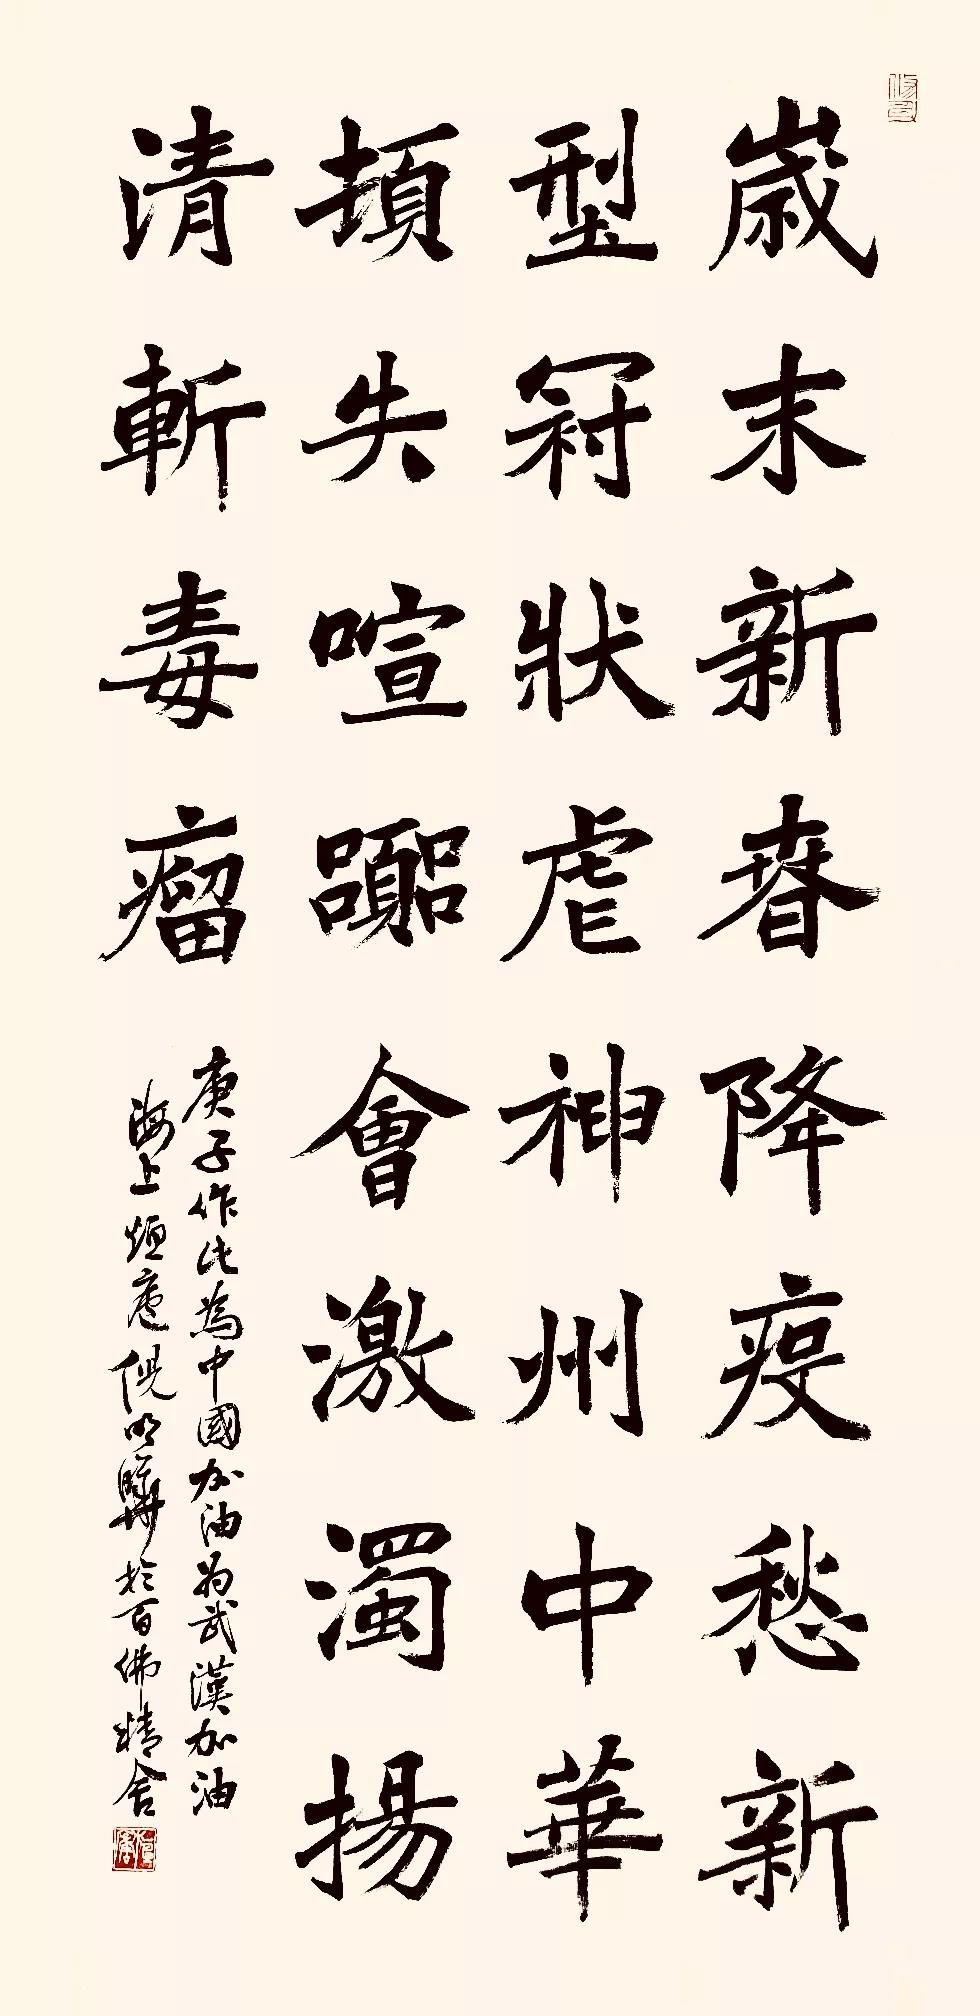 歲末新春降疫愁新
型冠狀虐神州中華
頓失喧囂會激濁揚
清斬毒瘤
庚子作此為中國加油为武漢加油
海上烜庵倪明驊於百佛精舍